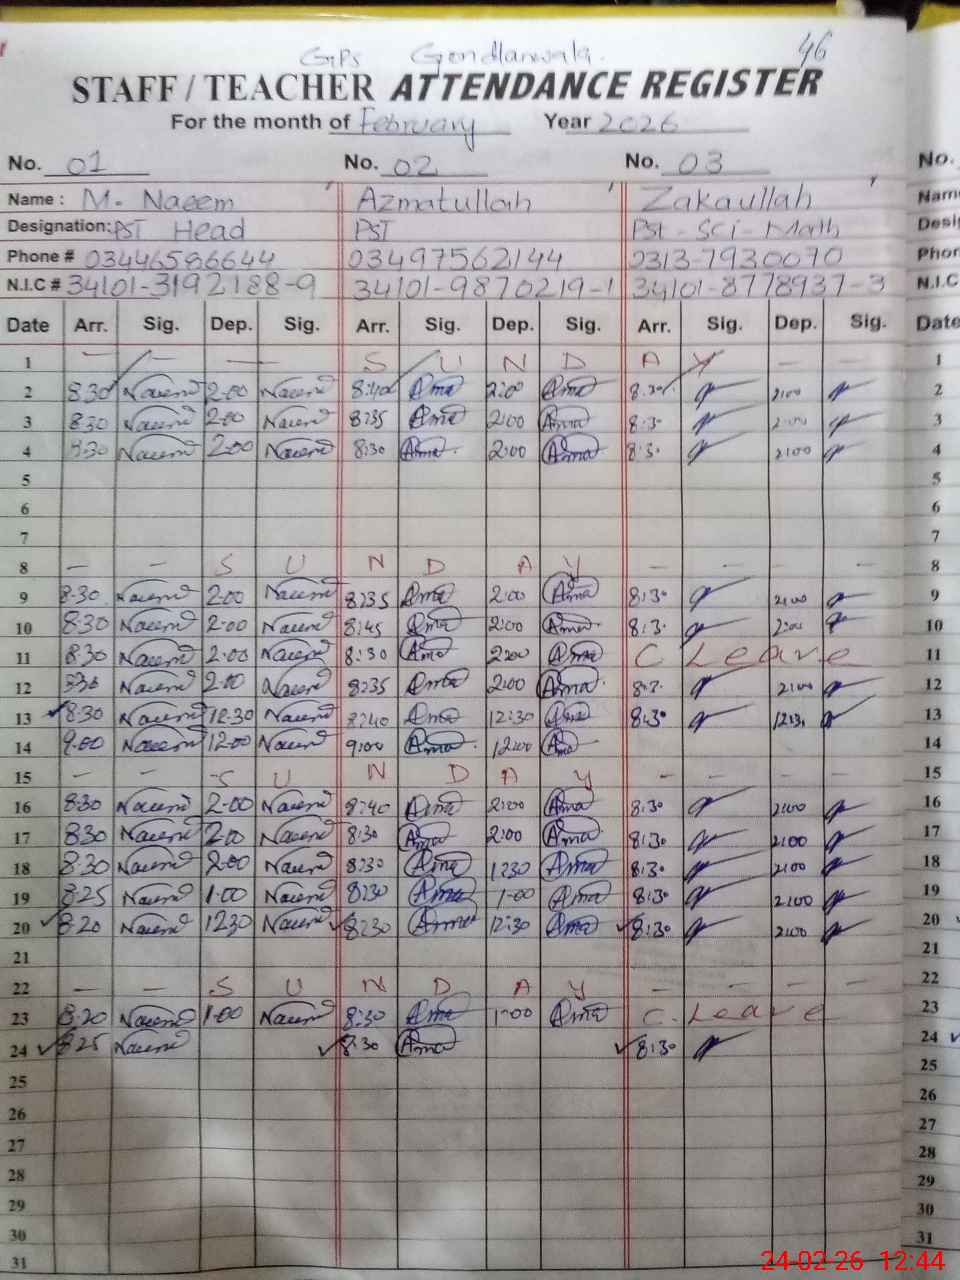 46
GPS Gondlanwala.
STAFF / TEACHER ATTENDANCE REGISTER
For the month of February Year 2026
No. 01 No. 02 No. 03 No.
Name : M. Naeem Azmatullah Zakaullah
Designation: PST Head PST PST - Sci - Math
Phone # 03446586644 03497562144 0313-7930070
N.I.C # 34101-3192188-9 34101-9870219-1 34101-8778937-3 N.I.C
Date Arr. Sig. Dep. Sig. Arr. Sig. Dep. Sig. Arr. Sig. Dep. Sig. Date
1 — — — S U N D A Y — 1
2 8:30 Naeem 2:00 Naeem 8:40 Ama 2:00 Ama 8:30 2:00 2
3 8:30 Naeem 2:00 Naeem 8:35 Ama 2:00 Ama 8:30 2:00 3
4 8:30 Naeem 2:00 Naeem 8:30 Ama 2:00 Ama 8:30 2:00 4
5 5
6 6
7 7
8 — — S U N D A Y — — — — 8
9 8:30 Naeem 2:00 Naeem 8:35 Ama 2:00 Ama 8:30 2:00 9
10 8:30 Naeem 2:00 Naeem 8:45 Ama 2:00 Ama 8:3. 2:00 10
11 8:30 Naeem 2:00 Naeem 8:30 Ama 2:00 Ama C Leave 11
12 830 Naeem 2:00 Naeem 8:35 Ama 2:00 Ama 2:00 12
13 8:30 Naeem 12:30 Naeem 8:40 Ama 12:30 Ama 8:30 13
14 9:00 Naeem 12:00 Naeem 9:00 Ama 12:00 Ama 14
15 — — S U N D A Y — — — — 15
16 8:30 Naeem 2:00 Naeem 8:40 Ama 2:00 Ama 8:30 2:00 16
17 8:30 Naeem 2:00 Naeem 8:30 Ama 2:00 Ama 8:30 2:00 17
18 8:30 Naeem 2:00 Naeem 8:30 Ama 1230 Ama 8:30 2:00 18
19 8:25 Naeem 1:00 Naeem 8:30 Ama 1:00 Ama 8:30 2:00 19
20 8:20 Naeem 1230 Naeem 8:30 Ama 12:30 Ama 8:30 2:00 20
21 21
22 — — S U N D A Y — — — — 22
23 8:20 Naeem 1:00 Naeem 8:30 Ama 1:00 Ama C. Leave 23
24 8:25 Naeem 8:30 Ama 8:30 24
25 25
26 26
27 27
28 28
29 29
30 30
31 31
24-02-26 12:44